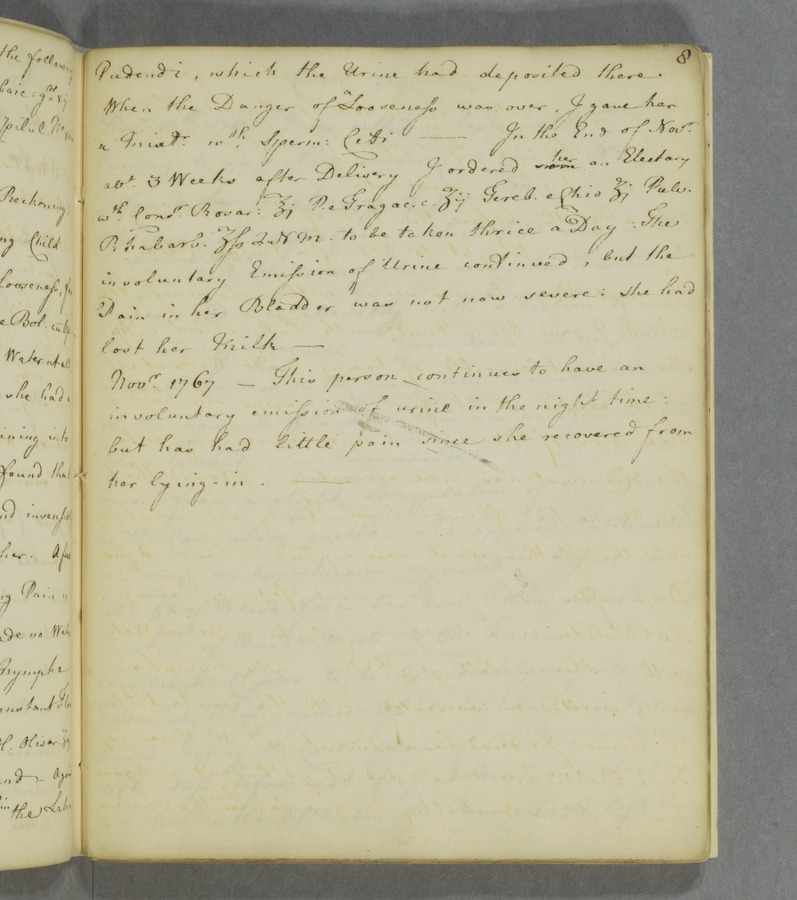 8
Pudendi, which the Urine had deposited there
When the Danger of a Looseness was over, I gave her
a Mixtr. wth. Sperm: Ceti — In the End of Novr.
abt. 3 Weeks after Delivery I ordered her an Electary
wth. Cons. Rosar: ℥j P. e Tragac. c. ʒij Tereb. e Chio ʒj Pulv.
Rhabarb. ʒſs ZuNM. to be taken thrice a Day. The
involuntary Emission of Urine continued, but the
Pain in her Bladder was not now severe: she had
lost her Milk —
Novr. 1767 — This person continues to have an
involuntary emission of urine in the night time:
but has had little pain since she recovered from
her lying-in. —
the followin
Reckoning
ng Child
Looseness, for
e Bol.
Water at all
she had
ining into
found that
nd
her.
ng Pain
de no Wat
Nympha
onstant
Ol. Olivar.
nd
in the